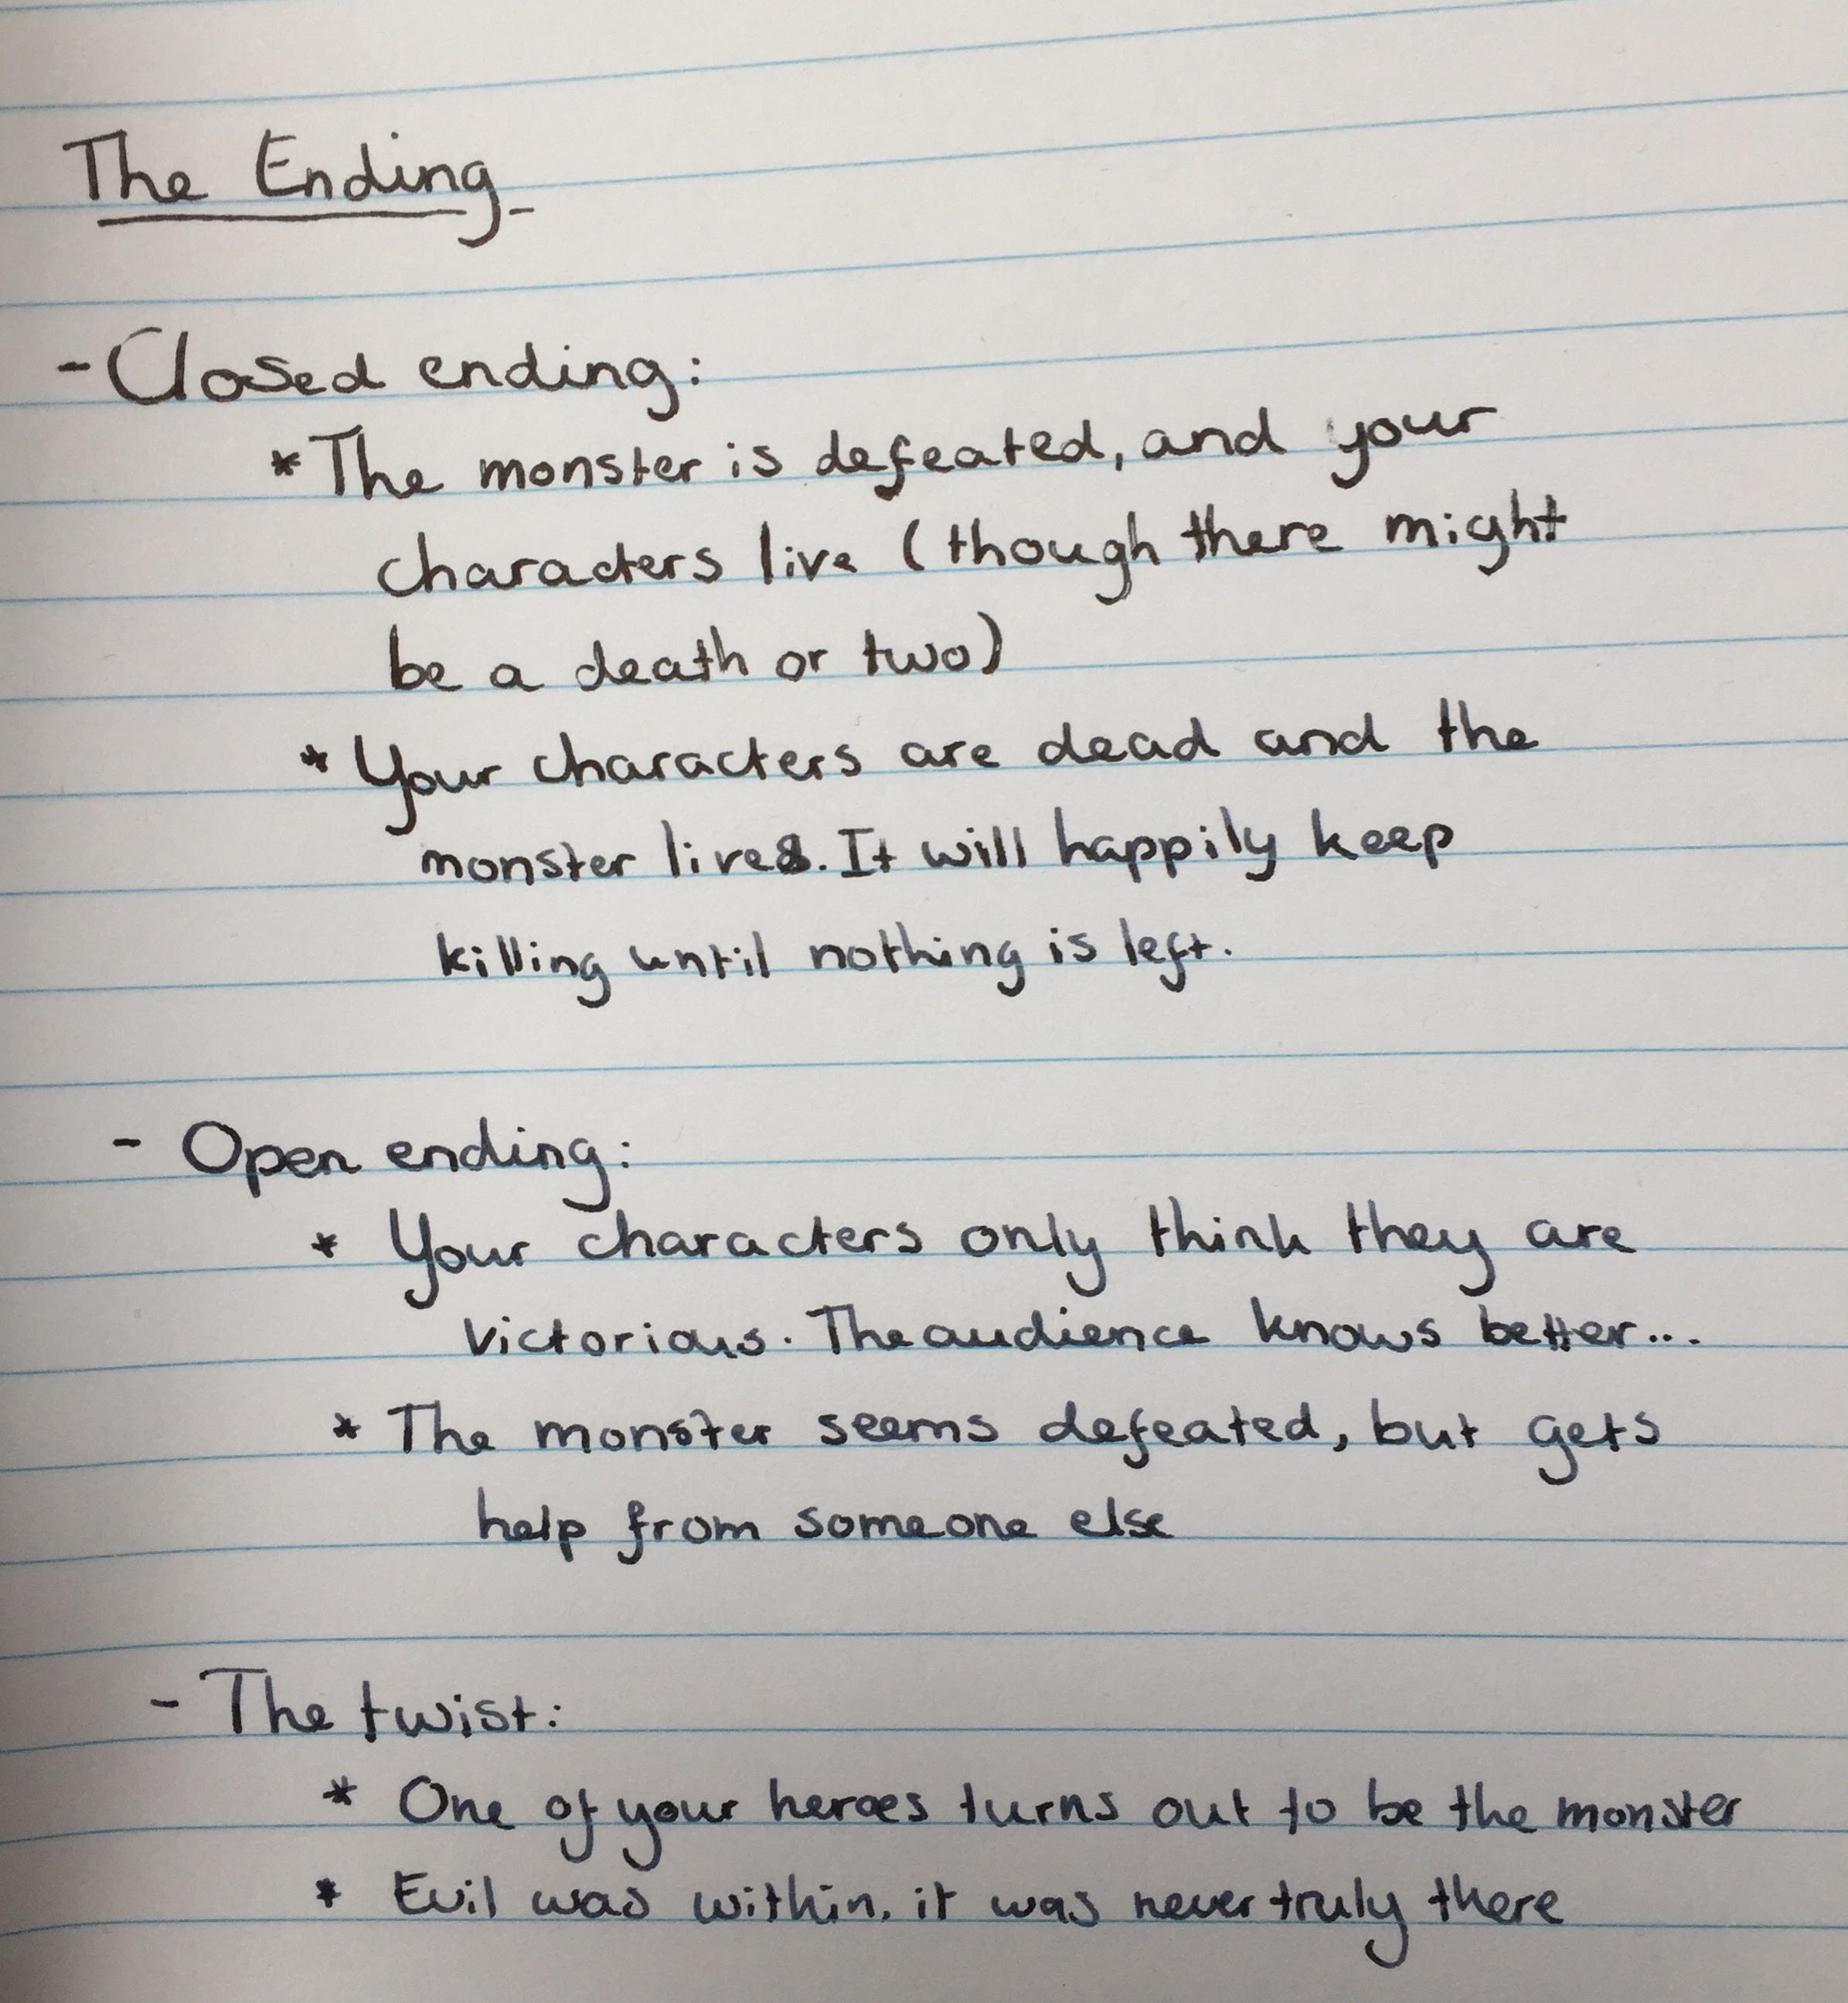 The Ending
- Closed ending:
* The monster is defeated, and your
characters live (though there might
be a death or two)
* Your characters are dead and the
monster lives. It will happily keep
killing until nothing is left.
- Open ending:
* Your characters only think they are
victorious. The audience knows better...
* The monster seems defeated, but gets
help from someone else
- The twist:
* One of your heroes turns out to be the monster
* Evil was within, it was never truly there